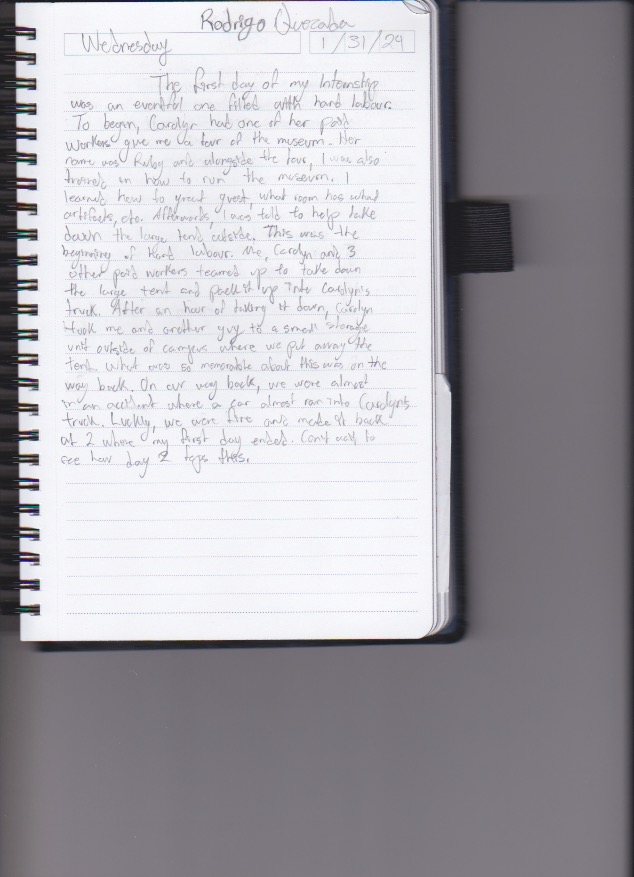 Rodrigo
Wednesday 1/31/24
The first day of my Internship
was an eventful one filled with hard labour.
To begin, Carolyn had one of her paid
workers give me a tour of the museum. Her
name was Ruby and alongside the tour, I was also
trained on how to run the museum. I
learned how to great guest, what room has what
artifacts, etc. Afterwords, I was told to help take
down the large tent outside. This was the
beginning of hard labour. Me, Carolyn and 3
other paid workers teamed up to take down
the large tent and pack it up into Carolyn's
truck. After an hour of taking it down, Carolyn
took me and another guy to a small storage
unit outside of campus where we put away the
tent. What was so memorable about this was on the
way back. On our way back, we were almost
in an accident where a car almost ran into Carolyn's
truck. Luckly, we were fine and made it back
at 2 where my first day ended. Can't wait to
see how day 2 tops this.